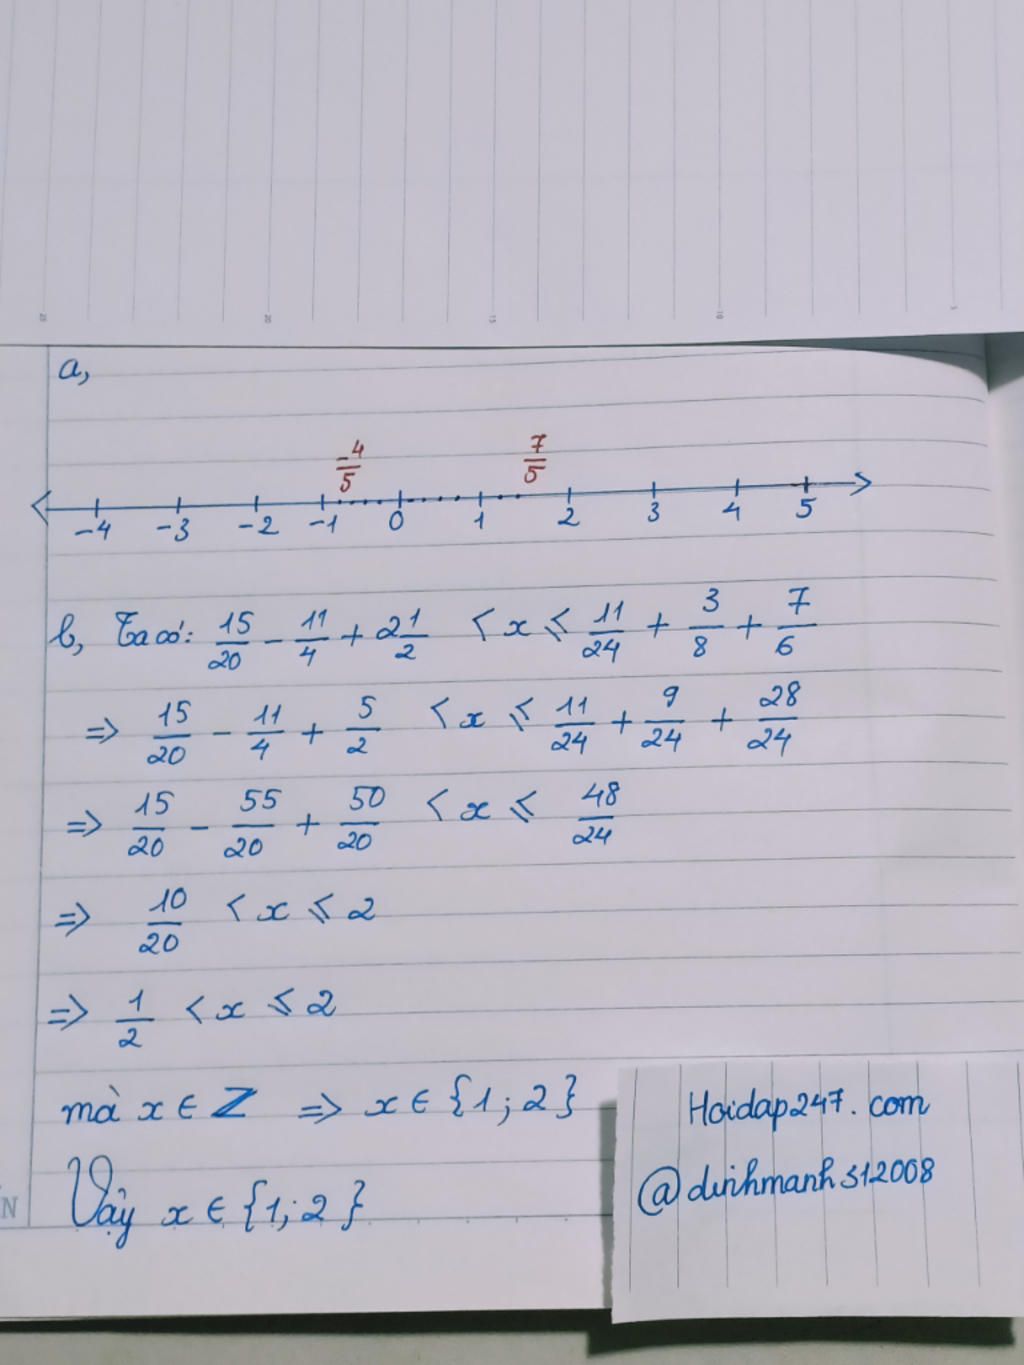 a,
-4/5 7/5
-4 -3 -2 -1 0 1 2 3 4 5
b, Ta có: 15/20 - 11/4 + 2 1/2 < x ⩽ 11/24 + 3/8 + 7/6
=> 15/20 - 11/4 + 5/2 < x ⩽ 11/24 + 9/24 + 28/24
=> 15/20 - 55/20 + 50/20 < x ⩽ 48/24
=> 10/20 < x ⩽ 2
=> 1/2 < x ⩽ 2
mà x ∈ Z => x ∈ {1; 2}
Vậy x ∈ {1; 2}
Hoidap247.com
@dinhmanh312008